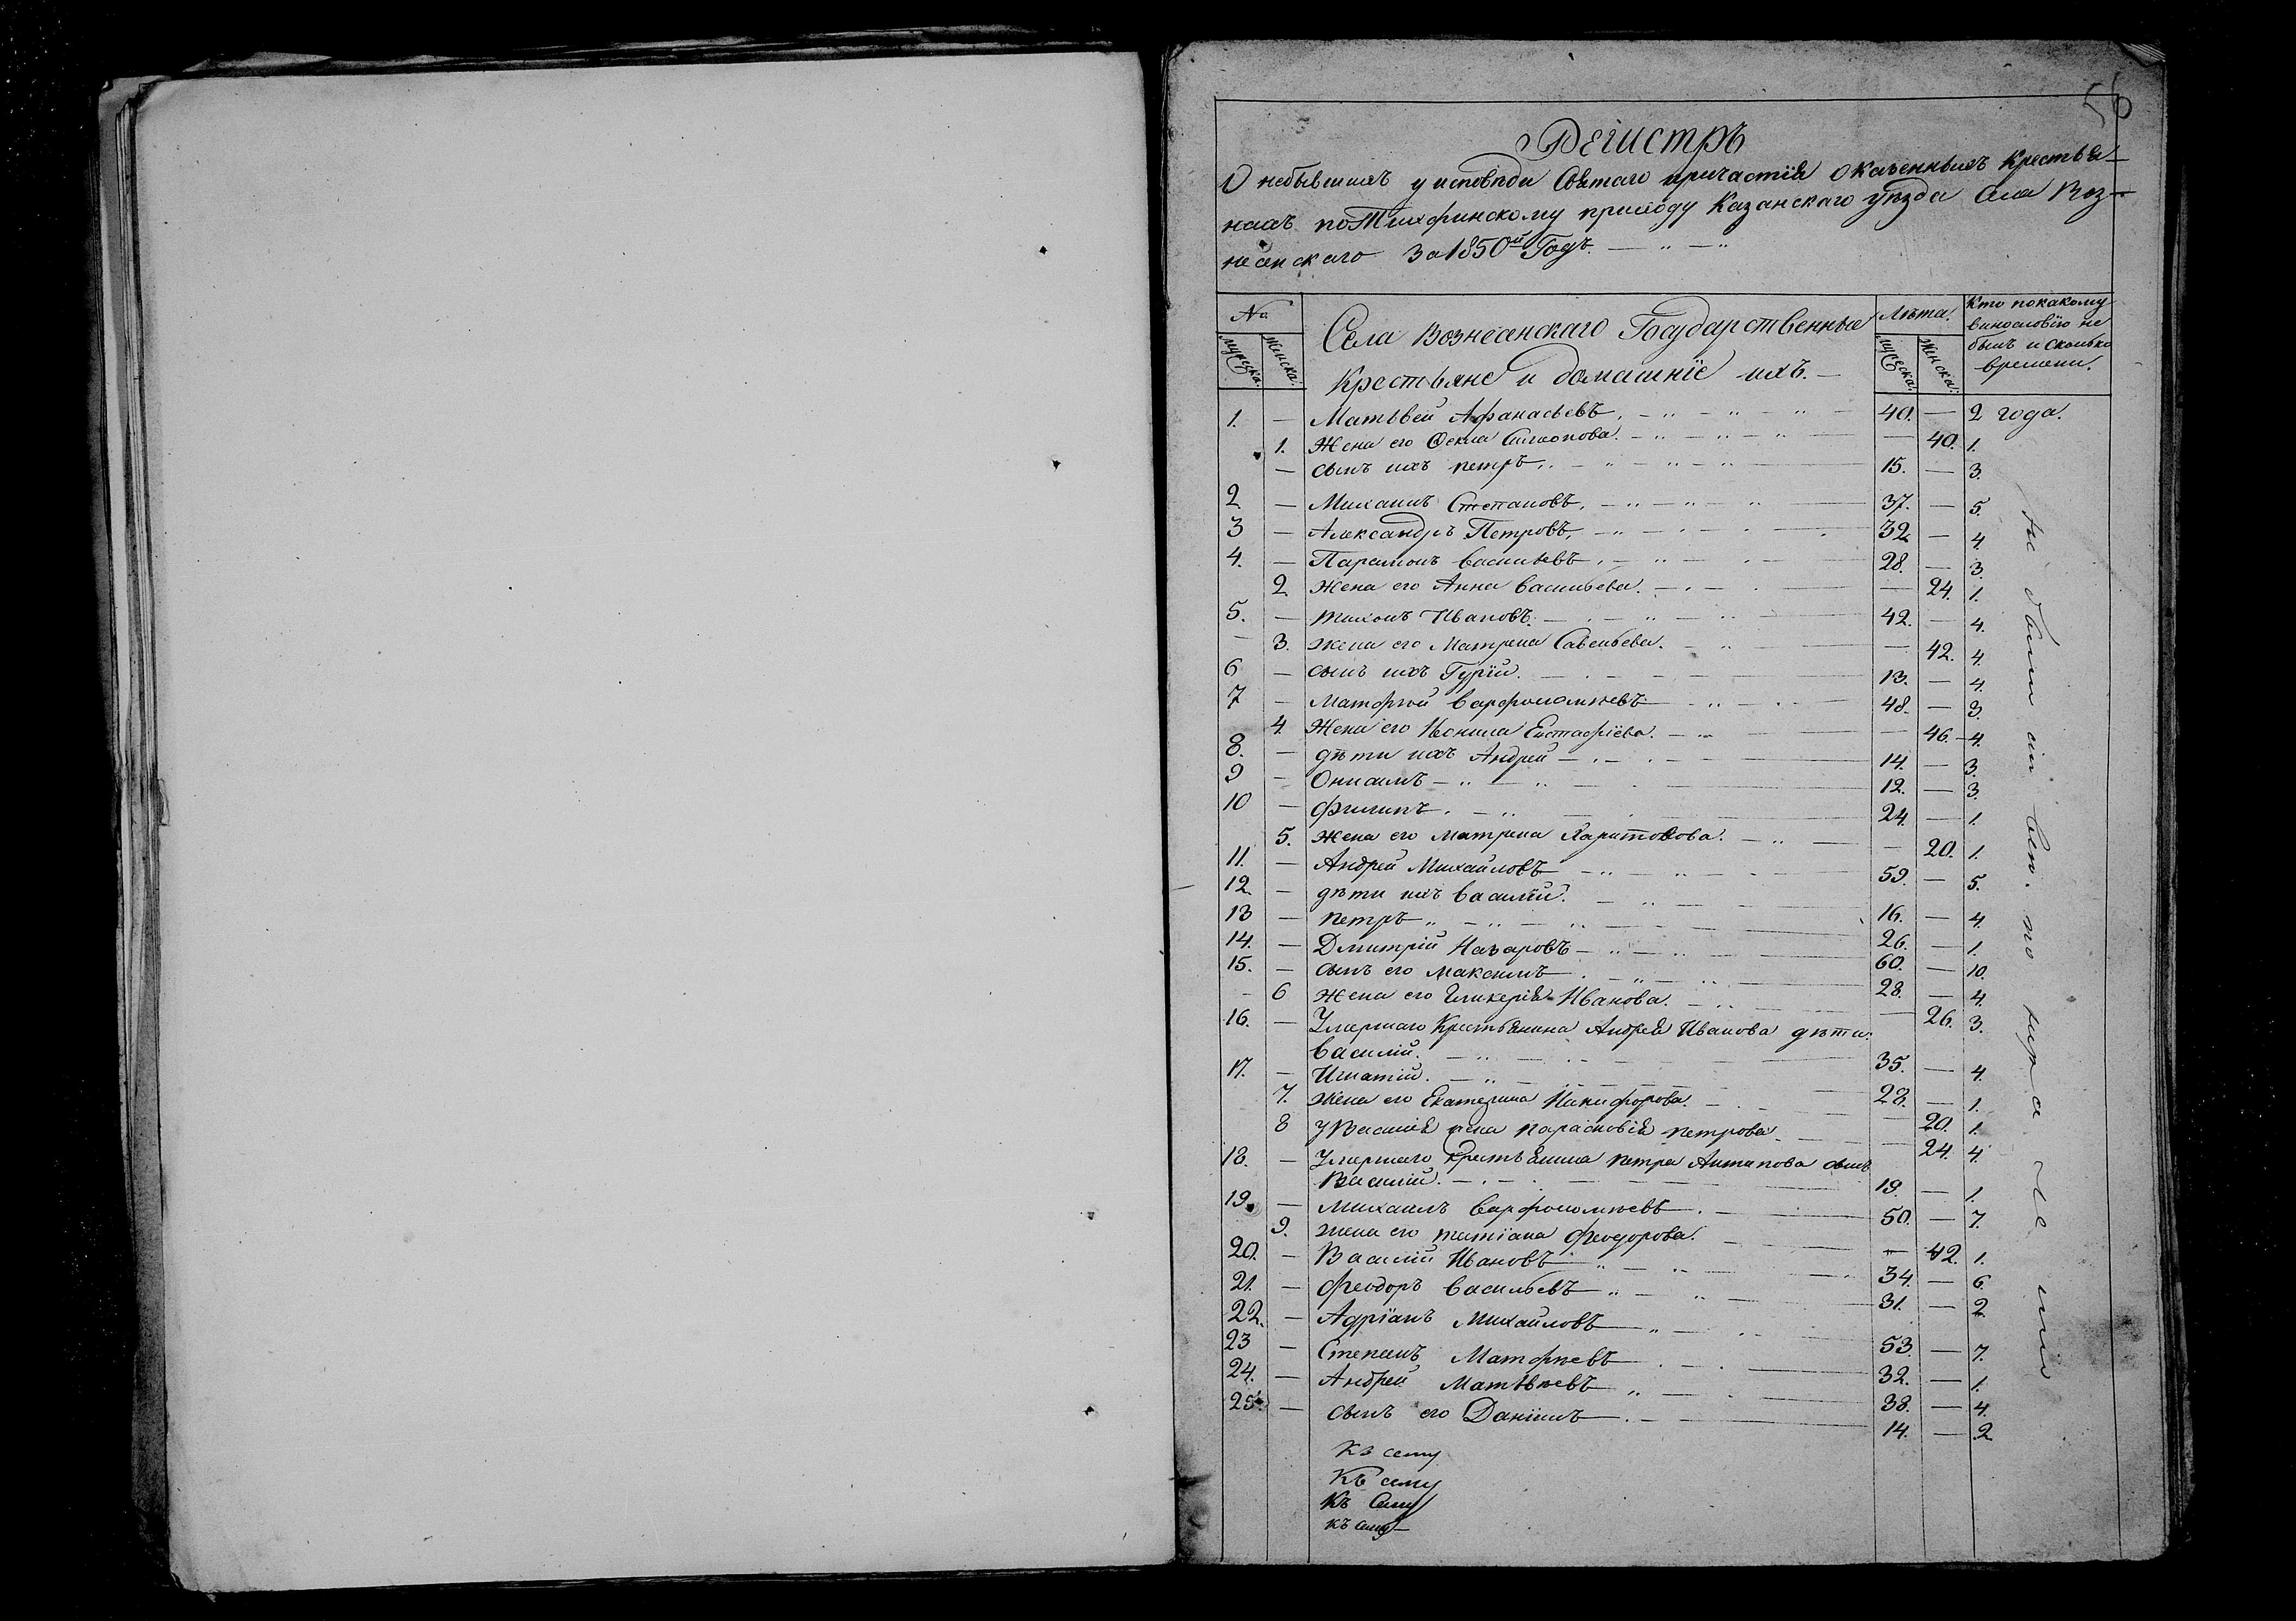 56
Регистръ
О небывшихъ у исповѣди Святаго причастія о казенныхъ крестья-
нахъ по Тихфинскому приходу Казанскаго уѣзда Села Воз-
несенскаго За 1850й Годъ.
№
мужеска.
женска.
Села Вознесенскаго Государственные
Крестьяне и домашніе ихъ.
Лѣта.
мужеска.
женска.
Кто по какому
винословію не
былъ и сколько
времени.
1. — Матьвей Афанасьевъ. 40. — 2 года.
1. Жена его Фекла 40. 1.
— сынъ ихъ петръ. 15. — 3.
2 — Михаилъ Степановъ. 37. — 5.
3 — Александръ Петровъ. 32 — 4.
4. — Парамонъ Васильевъ. 28. — 3.
2 Жена его Анна Васильева. — 24. 1.
5. — тихонъ Ивановъ. 42. — 4.
— 3. жена его Матрена Савельева. — 42. 4.
6 — сынъ ихъ Гурій. 13. — 4.
7 — Матофѣй Варфоломѣевъ 48. — 3.
4 Жена его Неонила Евстафіева. — 46. 4.
8. — дѣти ихъ Андрей 14. — 3.
9 — Онисимъ 12. — 3.
10 — Филипъ. 24. — 1.
5. Жена его матрена Харитонова. — 20. 1.
11. — Андрей Михайловъ 59. — 5.
12 — дѣти ихъ Василій. 16. — 4.
13 — петръ 26. — 1.
14. — Дмитрій Назаровъ 60. — 10.
15. — сынъ его Максимъ 28. — 4.
— 6 Жена его Гликерія Иванова. — 26. 3.
16. — Умершаго Крестьянина Андрея Иванова дѣти.
Василій. 35. — 4.
17. — Игнатій. 28. — 1.
7. Жена его Екатерина Никифорова. — 20. 1.
8 У Василія жена парасковія петрова. — 24. 4.
18. — Умершаго крестьянина петра Антипова сынъ
Василій. 19. — 1.
19. — михаилъ Варфоломѣевъ. 50. — 7.
9. жена его татіана Феодорова. — 42. 1.
20. — Василій Ивановъ 34. — 6.
21. — Феодоръ Васильевъ 31. — 2.
22. — Адріанъ михайловъ 53. — 7.
23 — Степанъ Матофѣевъ 32. — 1.
24. — Андрей Матвѣевъ 38. — 4.
25. — сынъ его Даніилъ. 14. — 2
не были сіи
Къ сему
Къ сему
Къ Сему
къ сему